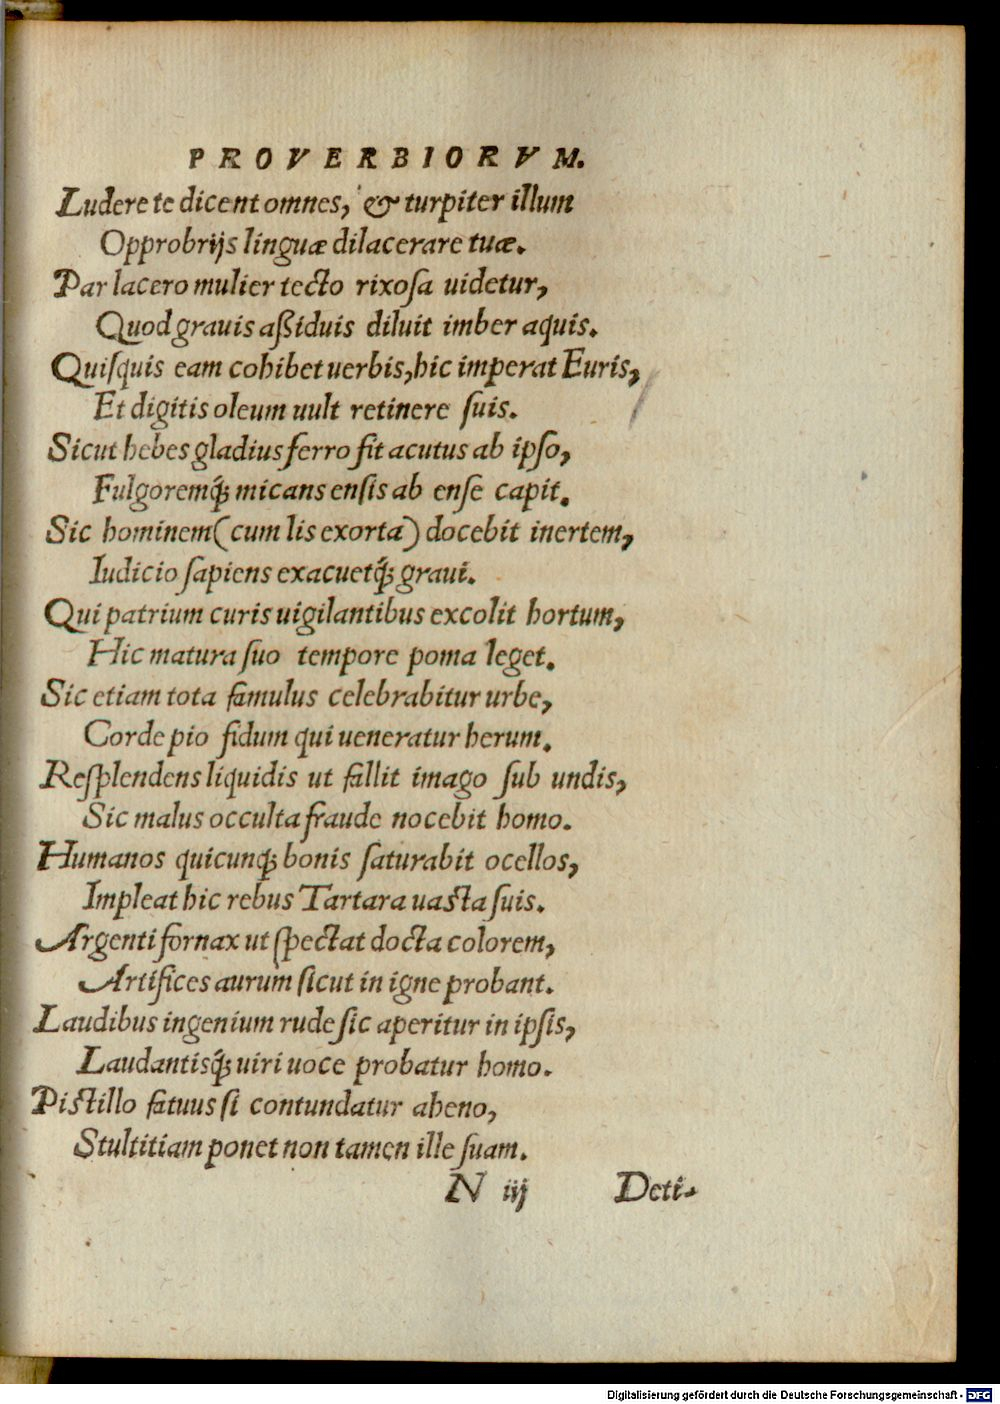 PROVERBIORVM.
Ludere te dicent omnes, & turpiter illum
Opprobrijs linguæ dilacerare tuæ.
Par lacero mulier tecto rixoſa uidetur,
Quod grauis aßiduis diluit imber aquis.
Quiſquis eam cohibet uerbis, hic imperat Euris,
Et digitis oleum uult retinere ſuis.
Sicut hebes gladius ferro fit acutus ab ipſo,
Fulgoremq́; micans enſis ab enſe capit.
Sic hominem (cum lis exorta) docebit inertem,
Iudicio ſapiens exacuetq́; graui.
Qui patrium curis uigilantibus excolit hortum,
Hic matura ſuo tempore poma leget.
Sic etiam tota famulus celebrabitur urbe,
Corde pio fidum qui ueneratur herum.
Reſplendens liquidis ut fallit imago ſub undis,
Sic malus occulta fraude nocebit homo.
Humanos quicunq; bonis ſaturabit ocellos,
Impleat hic rebus Tartara uaſta ſuis.
Argenti fornax ut ſpectat docta colorem,
Artifices aurum ſicut in igne probant.
Laudibus ingenium rude ſic aperitur in ipſis,
Laudantisq́; uiri uoce probatur homo.
Piſtillo fatuus ſi contundatur aheno,
Stultitiam ponet non tamen ille ſuam.
N iij Deti-
Digitalisierung gefördert durch die Deutsche Forschungsgemeinschaft - DFG